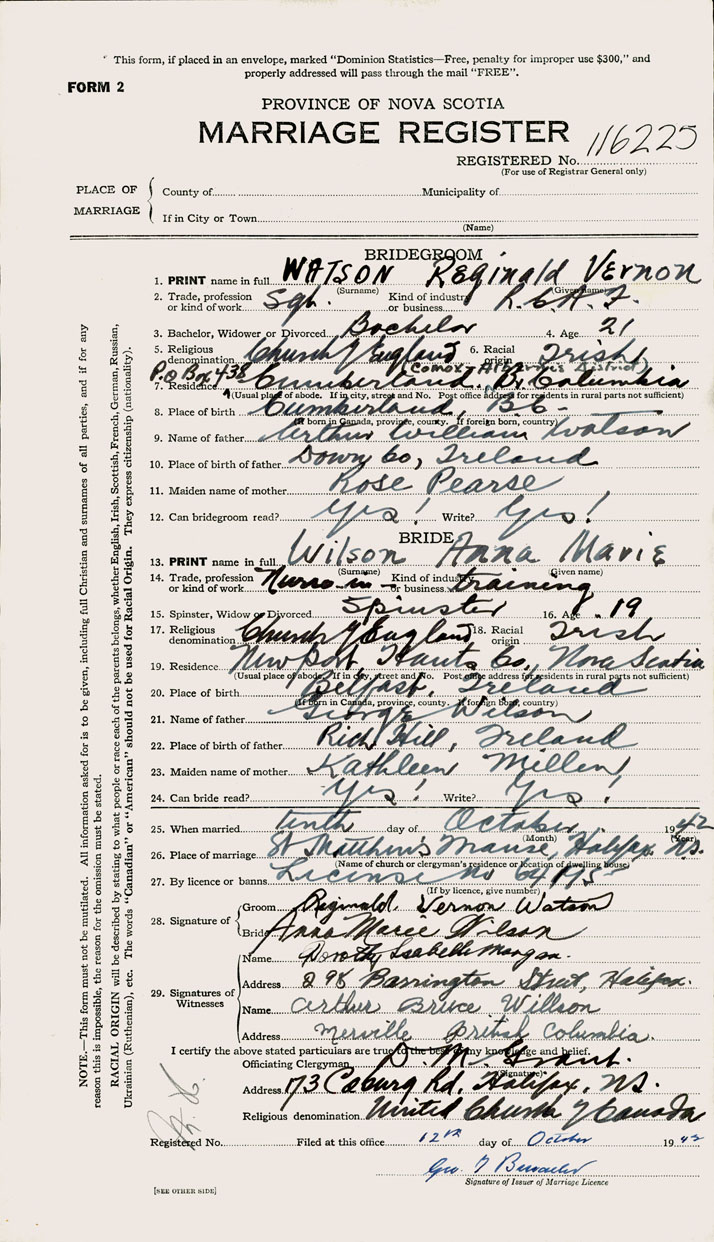 This form, if placed in an envelope, marked "Dominion Statistics—Free, penalty for improper use $300," and
properly addressed will pass through the mail "FREE".
FORM 2
PROVINCE OF NOVA SCOTIA
MARRIAGE REGISTER
REGISTERED No. 116225
(For use of Registrar General only)
PLACE OF MARRIAGE
County of Municipality of
If in City or Town
(Name)
BRIDEGROOM
1. PRINT name in full WATSON Reginald Vernon
(Surname) (Given name)
2. Trade, profession or kind of work Sgt. Kind of industry or business R.C.A.F.
3. Bachelor, Widower or Divorced Bachelor 4. Age 21
5. Religious denomination Church of England 6. Racial origin Irish
P.O Box 438 (Comox Alberni District)
7. Residence Cumberland, B. Columbia
(Usual place of abode. If in city, street and No. Post office address for residents in rural parts not sufficient)
8. Place of birth Cumberland, B.C.
(If born in Canada, province, county. If foreign born, country)
9. Name of father Arthur William Watson
10. Place of birth of father Down Co, Ireland
11. Maiden name of mother Rose Pearse
12. Can bridegroom read? Yes! Write? Yes!
BRIDE
13. PRINT name in full Wilson Anna Marie
(Surname) (Given name)
14. Trade, profession or kind of work Nurse-in- Kind of industry or business training
15. Spinster, Widow or Divorced Spinster 16. Age 19
17. Religious denomination Church of England 18. Racial origin Irish
19. Residence Newport, Hants Co, Nova Scotia
(Usual place of abode. If in city, street and No. Post office address for residents in rural parts not sufficient)
20. Place of birth Belfast, Ireland
(If born in Canada, province, county. If foreign born, country)
21. Name of father George Wilson
22. Place of birth of father Rich Hill, Ireland
23. Maiden name of mother Kathleen Millen
24. Can bride read? Yes! Write? Yes!
25. When married tenth day of October 1942
(Month) (Year)
26. Place of marriage St Matthew's Manse, Halifax N.S.
(Name of church or clergyman's residence or location of dwelling house)
27. By licence or banns License no
(If by licence, give number)
28. Signature of
Groom Reginald Vernon Watson
Bride Anna Marie Wilson
29. Signatures of Witnesses
Name Dorothy Isabelle Morgan.
Address 298 Barrington Street, Halifax.
Name Arthur Bruce Willson
Address Merville British Columbia.
I certify the above stated particulars are true to the best of my knowledge and belief.
Officiating Clergyman D. M. Grant.
(Signature)
Address 173 Coburg Rd, Halifax, N.S.
Religious denomination United Church of Canada
Registered No. Filed at this office 12th day of October 1942
Geo. T
Signature of Issuer of Marriage Licence
[SEE OTHER SIDE]
NOTE.—This form must not be mutilated. All information asked for is to be given, including full Christian and surnames of all parties, and if for any
reason this is impossible, the reason for the omission must be stated.
RACIAL ORIGIN will be described by stating to what people or race each of the parents belongs, whether English, Irish, Scottish, French, German, Russian,
Ukrainian (Ruthenian), etc. The words "Canadian" or "American" should not be used for Racial Origin. They express citizenship (nationality).